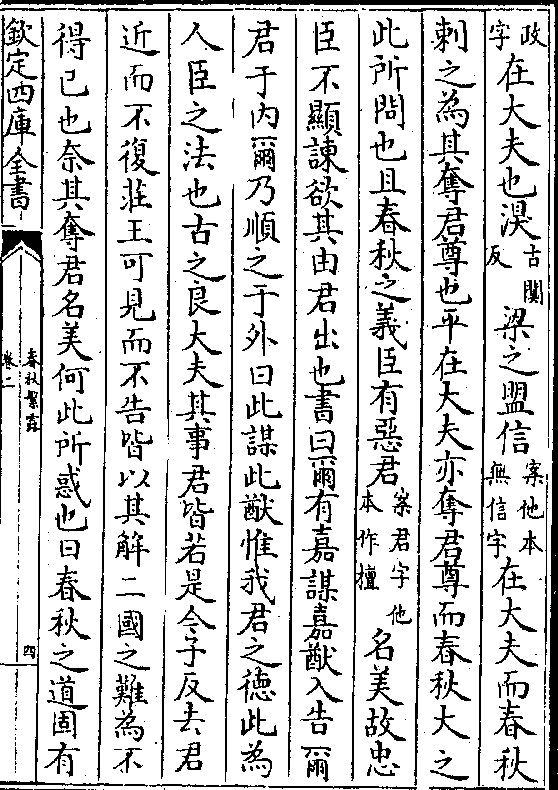 政字在大夫也湨古闃反梁之盟信案他本無信字在大夫而春秋
刺之為其奪君尊也平在大夫亦奪君尊而春秋大之
此所問也且春秋之義臣有惡君案君字他本作擅名美故忠
臣不顯諫欲其由君出也書曰爾有嘉謀嘉猷入告爾
君于内爾乃順之于外曰此謀此猷惟我君之德此為
人臣之法也古之良大夫其事君皆若是今子反去君
近而不復莊王可見而不告皆以其解二國之難為不
得已也奈其奪君名美何此所惑也曰春秋之道固有
欽定四庫全書
春秋繁露
卷二
四